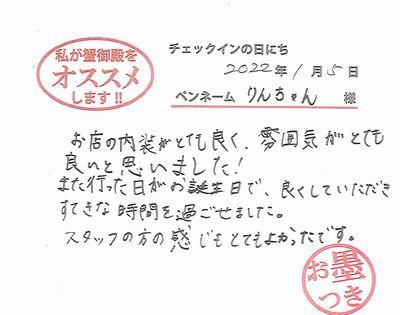 私が蟹御殿を
オススメ
します!!
チェックインの日にち
2022年1月5日
ペンネーム りんちゃん 様
お店の内装がとても良く、雰囲気がとても
良いと思いました!
また行った日がお誕生日で、良くしていただき
すてきな時間を過ごせました。
スタッフの方の感じもとてもよかったです。
お墨
つき